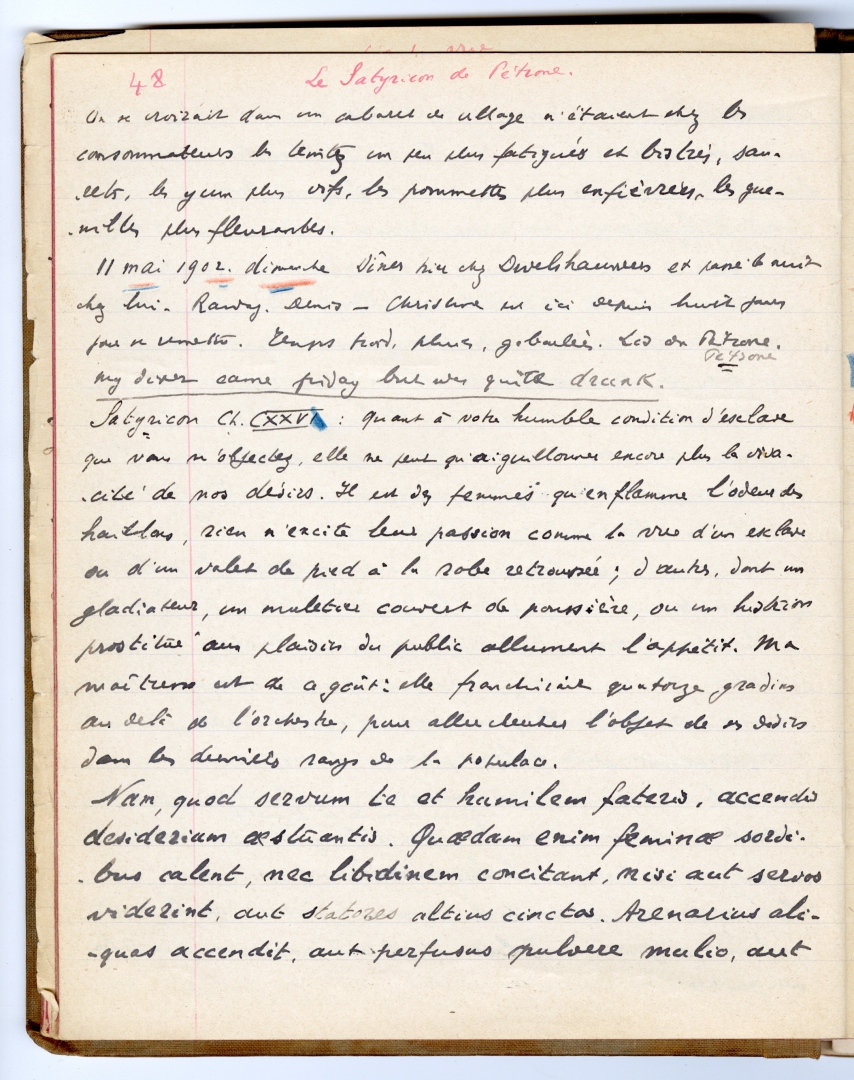 48 Le Satyricon de Pétrone.
On se croirait dans un cabaret de village n'étaient chez les
consommateurs les teintes un peu plus fatiguées et bistrées, sau-
-cets, les yeux plus vifs, les pommettes plus enfiévrées, les gue-
-nilles plus fleurantes.
11 mai 1902. dimanche Dîner hier chez Dwelshauwers et passé la nuit
chez lui. Denis – Christine est ici depuis huit jours
pour se remettre. Temps froid, pluies, giboulées. Lis du Pétrone.
Pétrone
my diver came friday but was quite drunk.
Satyricon Ch. CXXVI : quant à votre humble condition d'esclave
que vous m'objectez, elle ne peut qu'aiguillonner encore plus la viva-
-cité de nos désirs. Il est des femmes qu'enflamme l'odeur des
haillons, rien n'excite leur passion comme la vue d'un esclave
ou d'un valet de pied à la robe retroussée ; d'autres, dont un
gladiateur, un muletier couvert de poussière, ou un histrion
prostitué aux plaisirs du public allument l'appétit. Ma
maîtresse est de ce goût: elle franchirait quatorze gradins
au delà de l'orchestre, pour aller chercher l'objet de ses désirs
dans les derniers rangs de la populace.
Nam, quod servum te et humilem fateris, accendis
desiderium æstuantis. Quædam enim feminæ sordi-
-bus calent, nec libidinem concitant, nisi aut servos
viderint, aut statores altius cinctos. Arenarius ali-
-quas accendit, aut perfusus pulvere mulio, aut